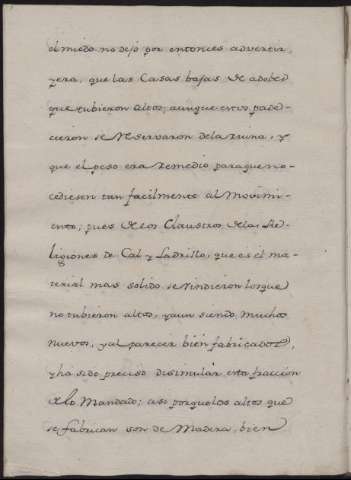 el miedo no dejó por entonces advertir,
y era, que las Casas bajas de adobes
que tubieron altos; aunque estos pade-
cieron se reservaron de la ruina, y
que el peso era remedio para que no
cediesen tan facilmente al movimi-
ento; pues de los Claustros de las Re-
ligiones de Cal y Ladrillo, que es el ma-
terial mas solido se rindieron los que
no tubieron altos, y aun siendo muchos
nuevos, y al parecer bien fabricados,
y ha sido preciso disimular esta fraccion
de lo Mandado; caso porque los altos que
se fabrican son de Madera, bien